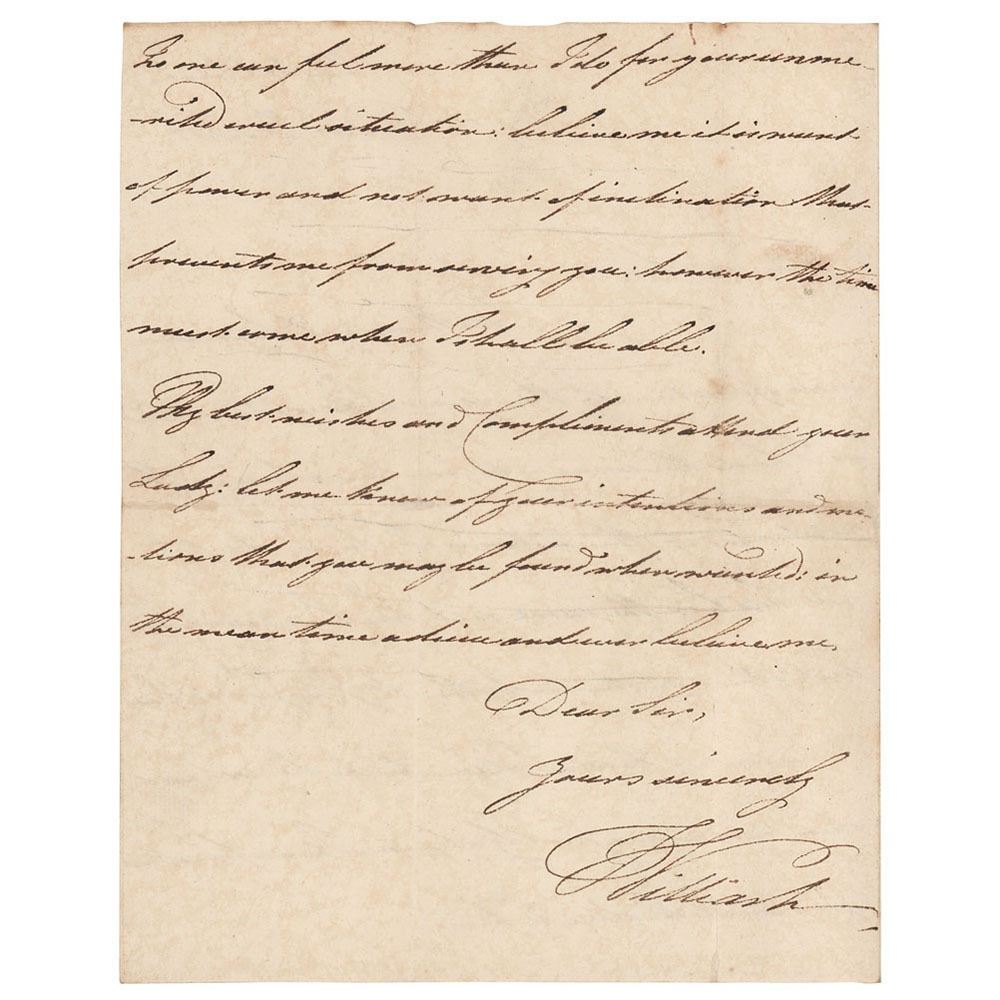 No one can feel more than I do for your unme-
-rited cruel situation: believe me it is want
of power and not want of inclination that
prevents me from serving you: however the time
must come when I shall be able.
My best wishes and Compliments attend your
Lady: let me know of your intentions and mo-
-tions that you may be found when wanted: in
the mean time adieu and ever believe me,
Dear Sir,
Yours sincerely
William